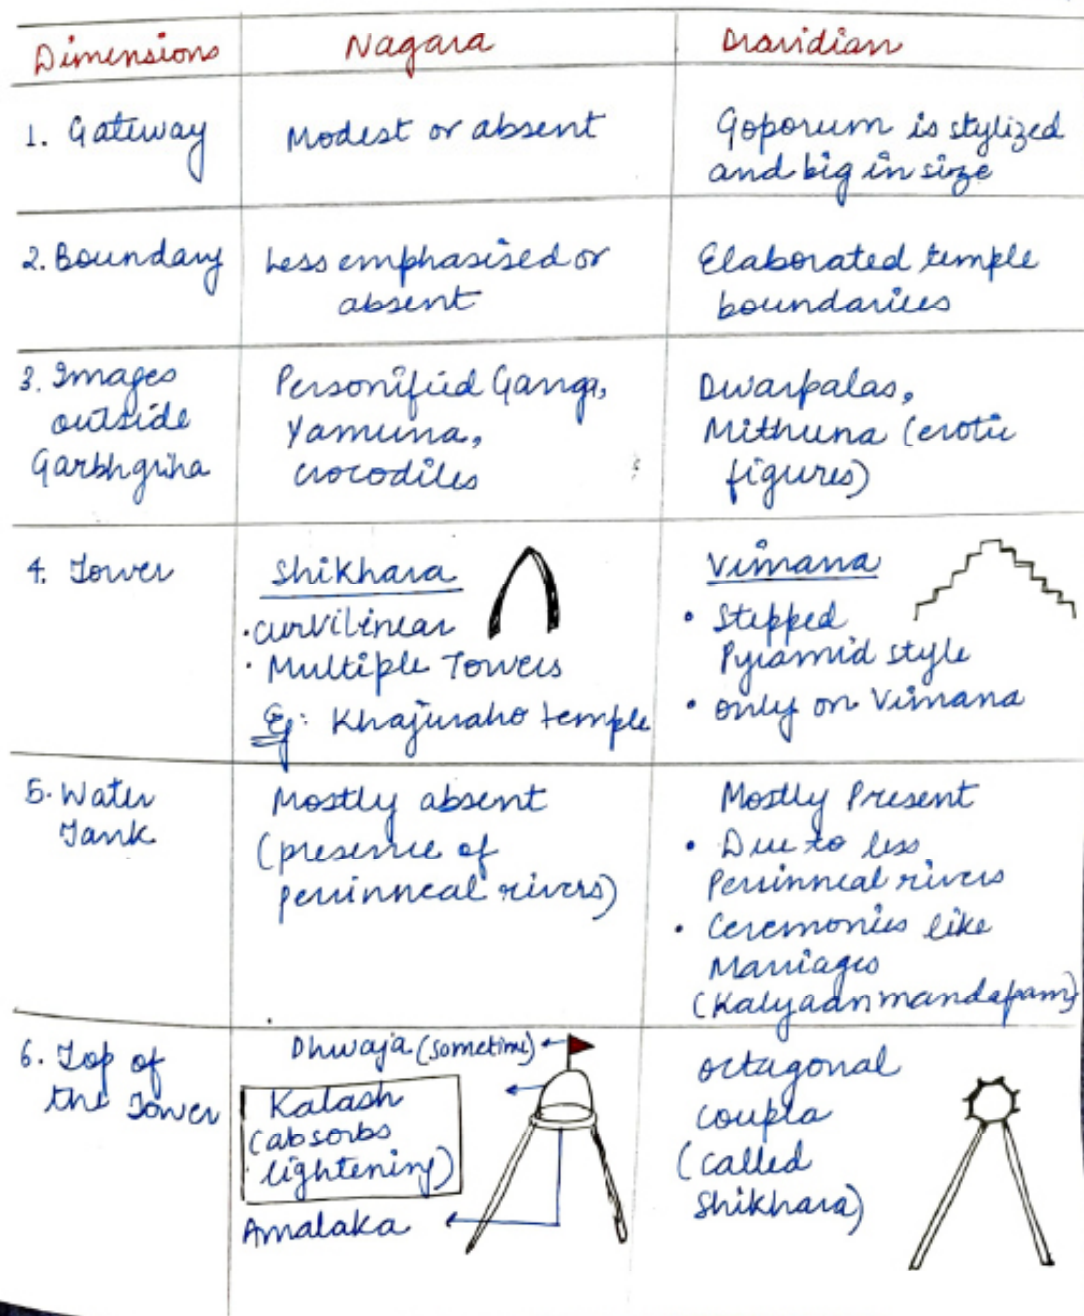 Dimensions Nagara Dravidian
1. Gateway
Modest or absent
Goporum is stylized
and big in size
2. Boundary
Less emphasised or
absent
Elaborated temple
boundariees
3. Images
outside
Garbhgriha
Personified Ganga,
Yamuna,
crocodiles
Dwarpalas,
Mithuna (erotic
figures)
4. Tower
Shikhara
• curvilinear
• Multiple Towers
Eg: Khajuraho temple
Vimana
• Stepped
Pyramid style
• only on Vimana
5. Water
Tank
Mostly absent
(presence of
perinneal rivers)
Mostly Present
• Due to less
Perinneal rivers
• Ceremonies like
Marriages
(Kalyaanmandapam)
6. Top of
the Tower
Dhwaja (sometime)
Kalash
(absorbs
lightening)
Amalaka
octagonal
coupla
(called
Shikhara)